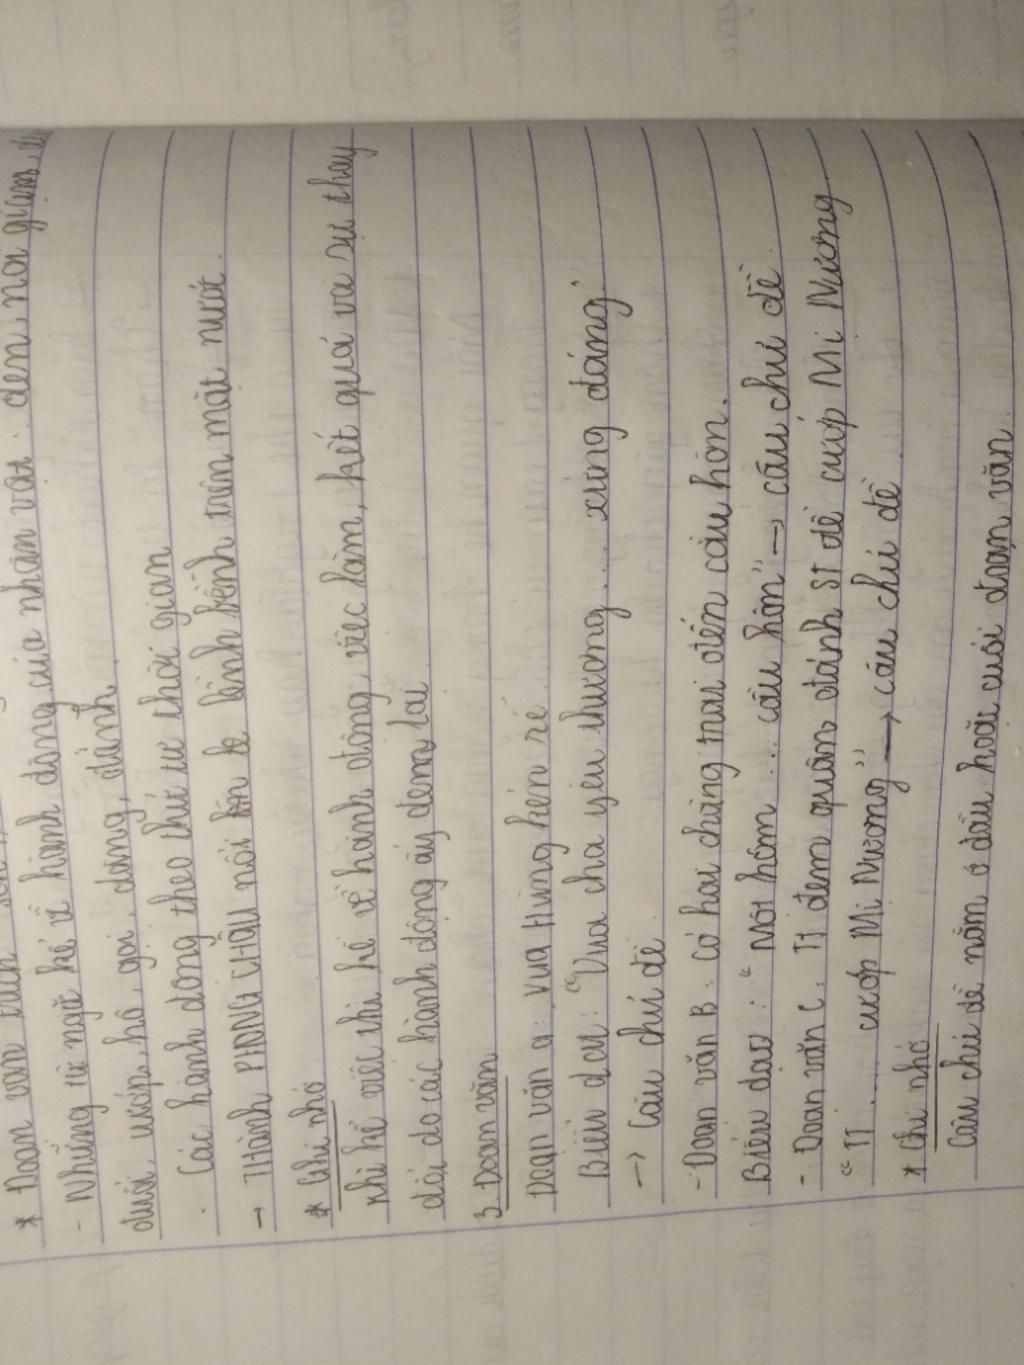 * Đoạn văn
- Những từ ngữ kể về hành động của nhân vật: đến, nổi giận,
đuổi, cướp, hô, gọi, dâng, đánh
. Các hành động theo thứ tự thời gian
→ THÀNH PHONG CHÂU nổi lềnh bềnh trên mặt nước.
* Ghi nhớ
Khi kể việc thì kể về hành động, việc làm, kết quả và sự thay
đổi do các hành động ấy đem lại
3. Đoạn văn
Đoạn văn a: Vua Hùng kén rể
Biểu đạt: "Vua cha yêu thương... xứng đáng"
→ Câu chủ đề
- Đoạn văn B: có hai chàng trai đến cầu hôn.
Biểu đạt: "Một hôm .... cầu hôn" → câu chủ đề.
- Đoạn văn C: TT đem quân đánh ST để cướp Mị Nương
"TT .... cướp Mị Nương" → câu chủ đề
* Ghi nhớ
Câu chủ đề nằm ở đầu hoặc cuối đoạn văn.